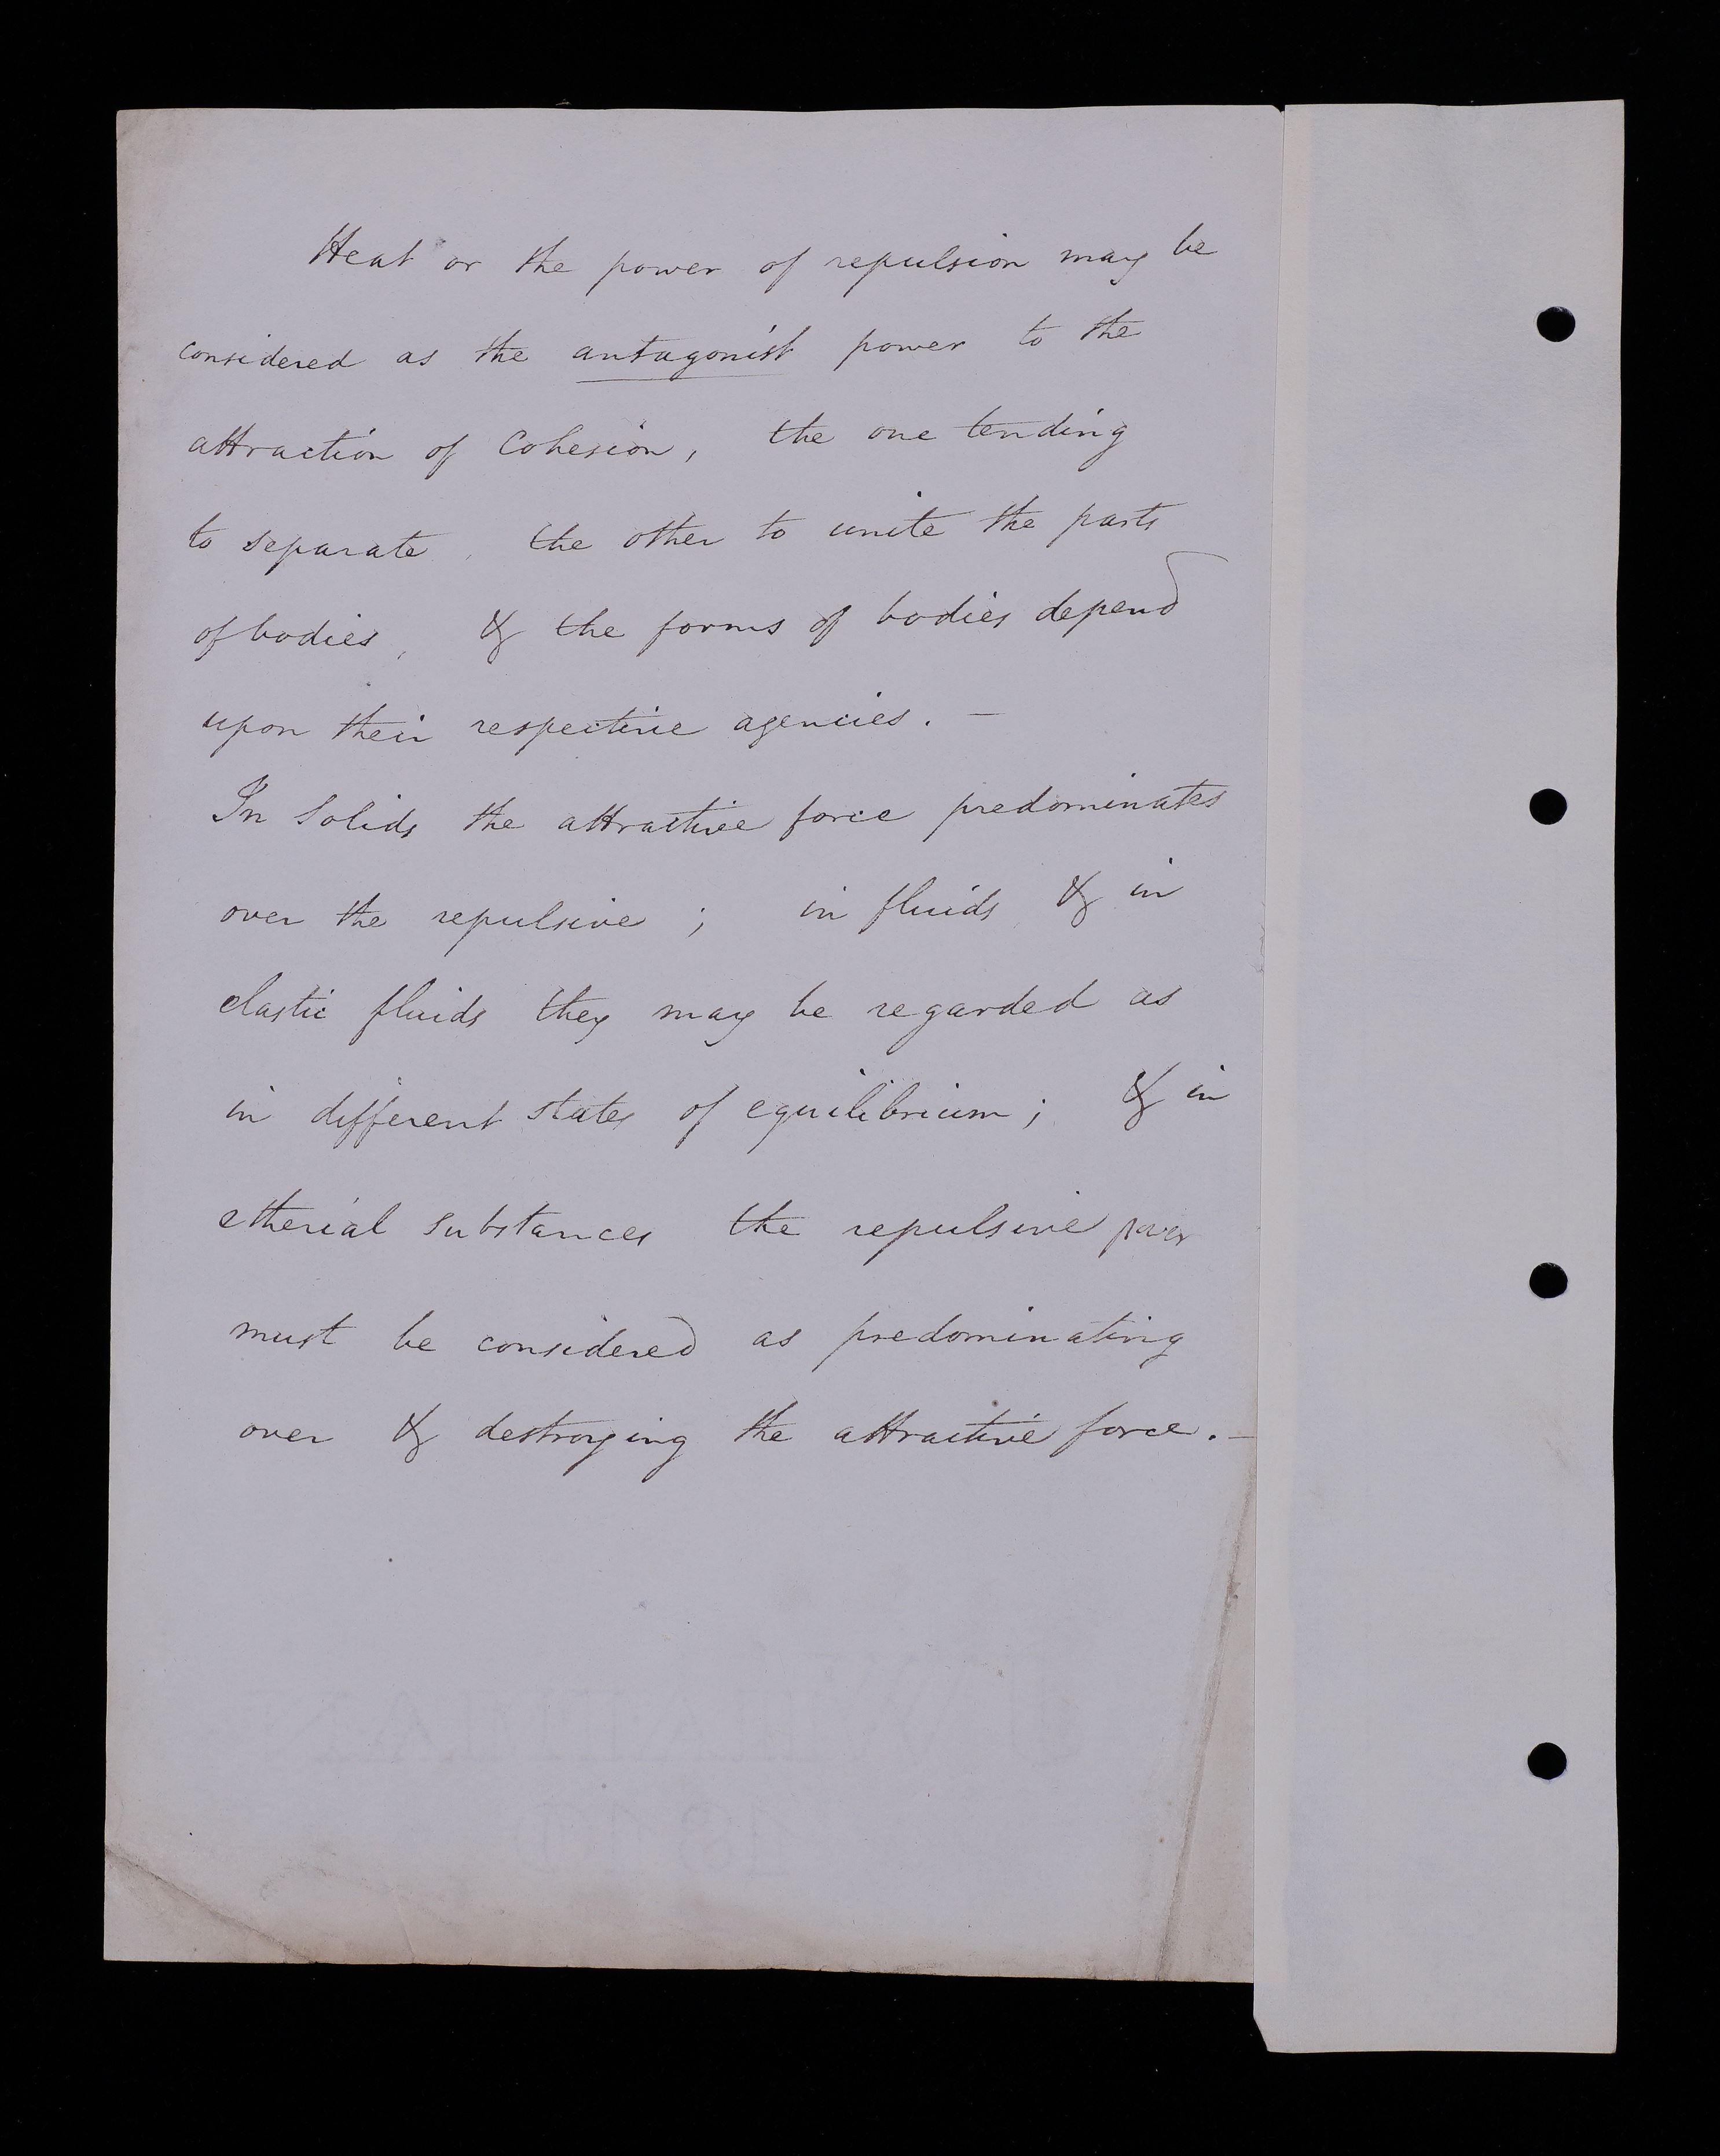 Heat or the power of repulsion may be
considered as the antagonist power to the
attraction of Cohesion, the one tending
to separate, the other to unite the parts
of bodies, & the forms of bodies depend
upon their respective agencies. —
In Solids the attractive force predominates
over the repulsive ; in fluids & in
elastic fluids they may be regarded as
in different states of equilibrium ; & in
etherial substances the repulsive power
must be considered as predominating
over & destroying the attractive force. —